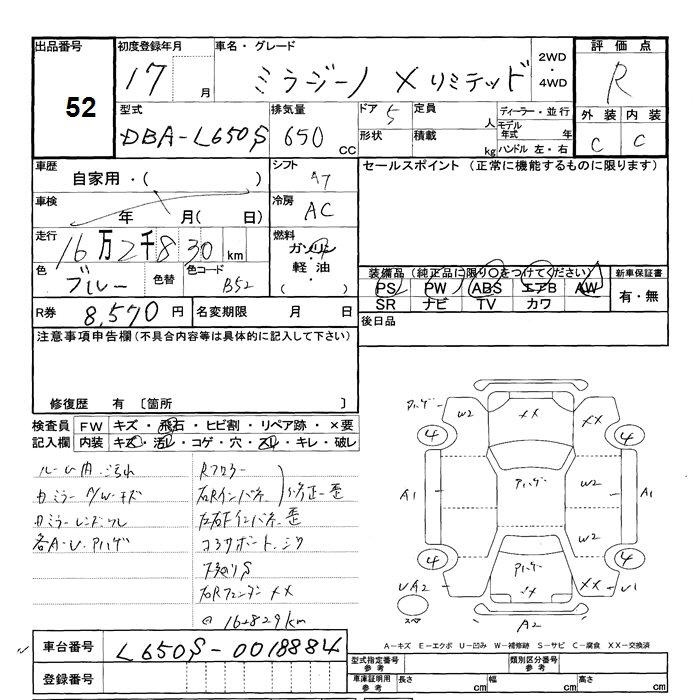 出品番号 初度登録年月 車名・グレード 2WD・4WD 評価点
52 17 月 ミラジーノ Xリミテッド R
型式 排気量 ドア 定員 ディーラー・並行 外装 内装
DBA-L650S 650 CC 5 人 モデル年式 年 C C
形状 積載 kg ハンドル 左・右
車歴 自家用・( ) シフト A7 セールスポイント (正常に機能するものに限ります)
車検 年 月( 日) 冷房 AC
走行 16万2千830 km 燃料 ガソリン・軽油・( )
色 ブルー 色替 色コード B52
装備品(純正品に限り○をつけてください) 新車保証書
PS PW ABS エアB AW 有・無
SR ナビ TV カワ
R券 8,570 円 名変期限 月 日 後日品
注意事項申告欄(不具合内容等は具体的に記入して下さい)
修復歴 有 〔箇所 〕
検査員記入欄 FW キズ・飛石・ヒビ割・リペア跡・×要
内装 キズ・汚レ・コゲ・穴・スレ・キレ・破レ
ルーム内汚れ Rフロアー
カミラー P/W キズ 右Rインパネ
修正歪
左右Fインパネ歪
各A-U.Pハゲ コアサポート
下廻りS
右Rフェンダー XX
@ 162829km
Pハゲ W2 XX XX
4 4
A1 Pハゲ W2 A1
W2
4 Pハゲ 4
UA2 XX XX U1
スペア A2
A-キズ E-エクボ U-凹み W-補修跡 S-サビ C-腐食 XX-交換済
車台番号 L650S-0018884
型式指定番号 参考 類別区分番号 参考
登録番号 車庫証明用 参考 長さ cm 幅 cm 高さ cm